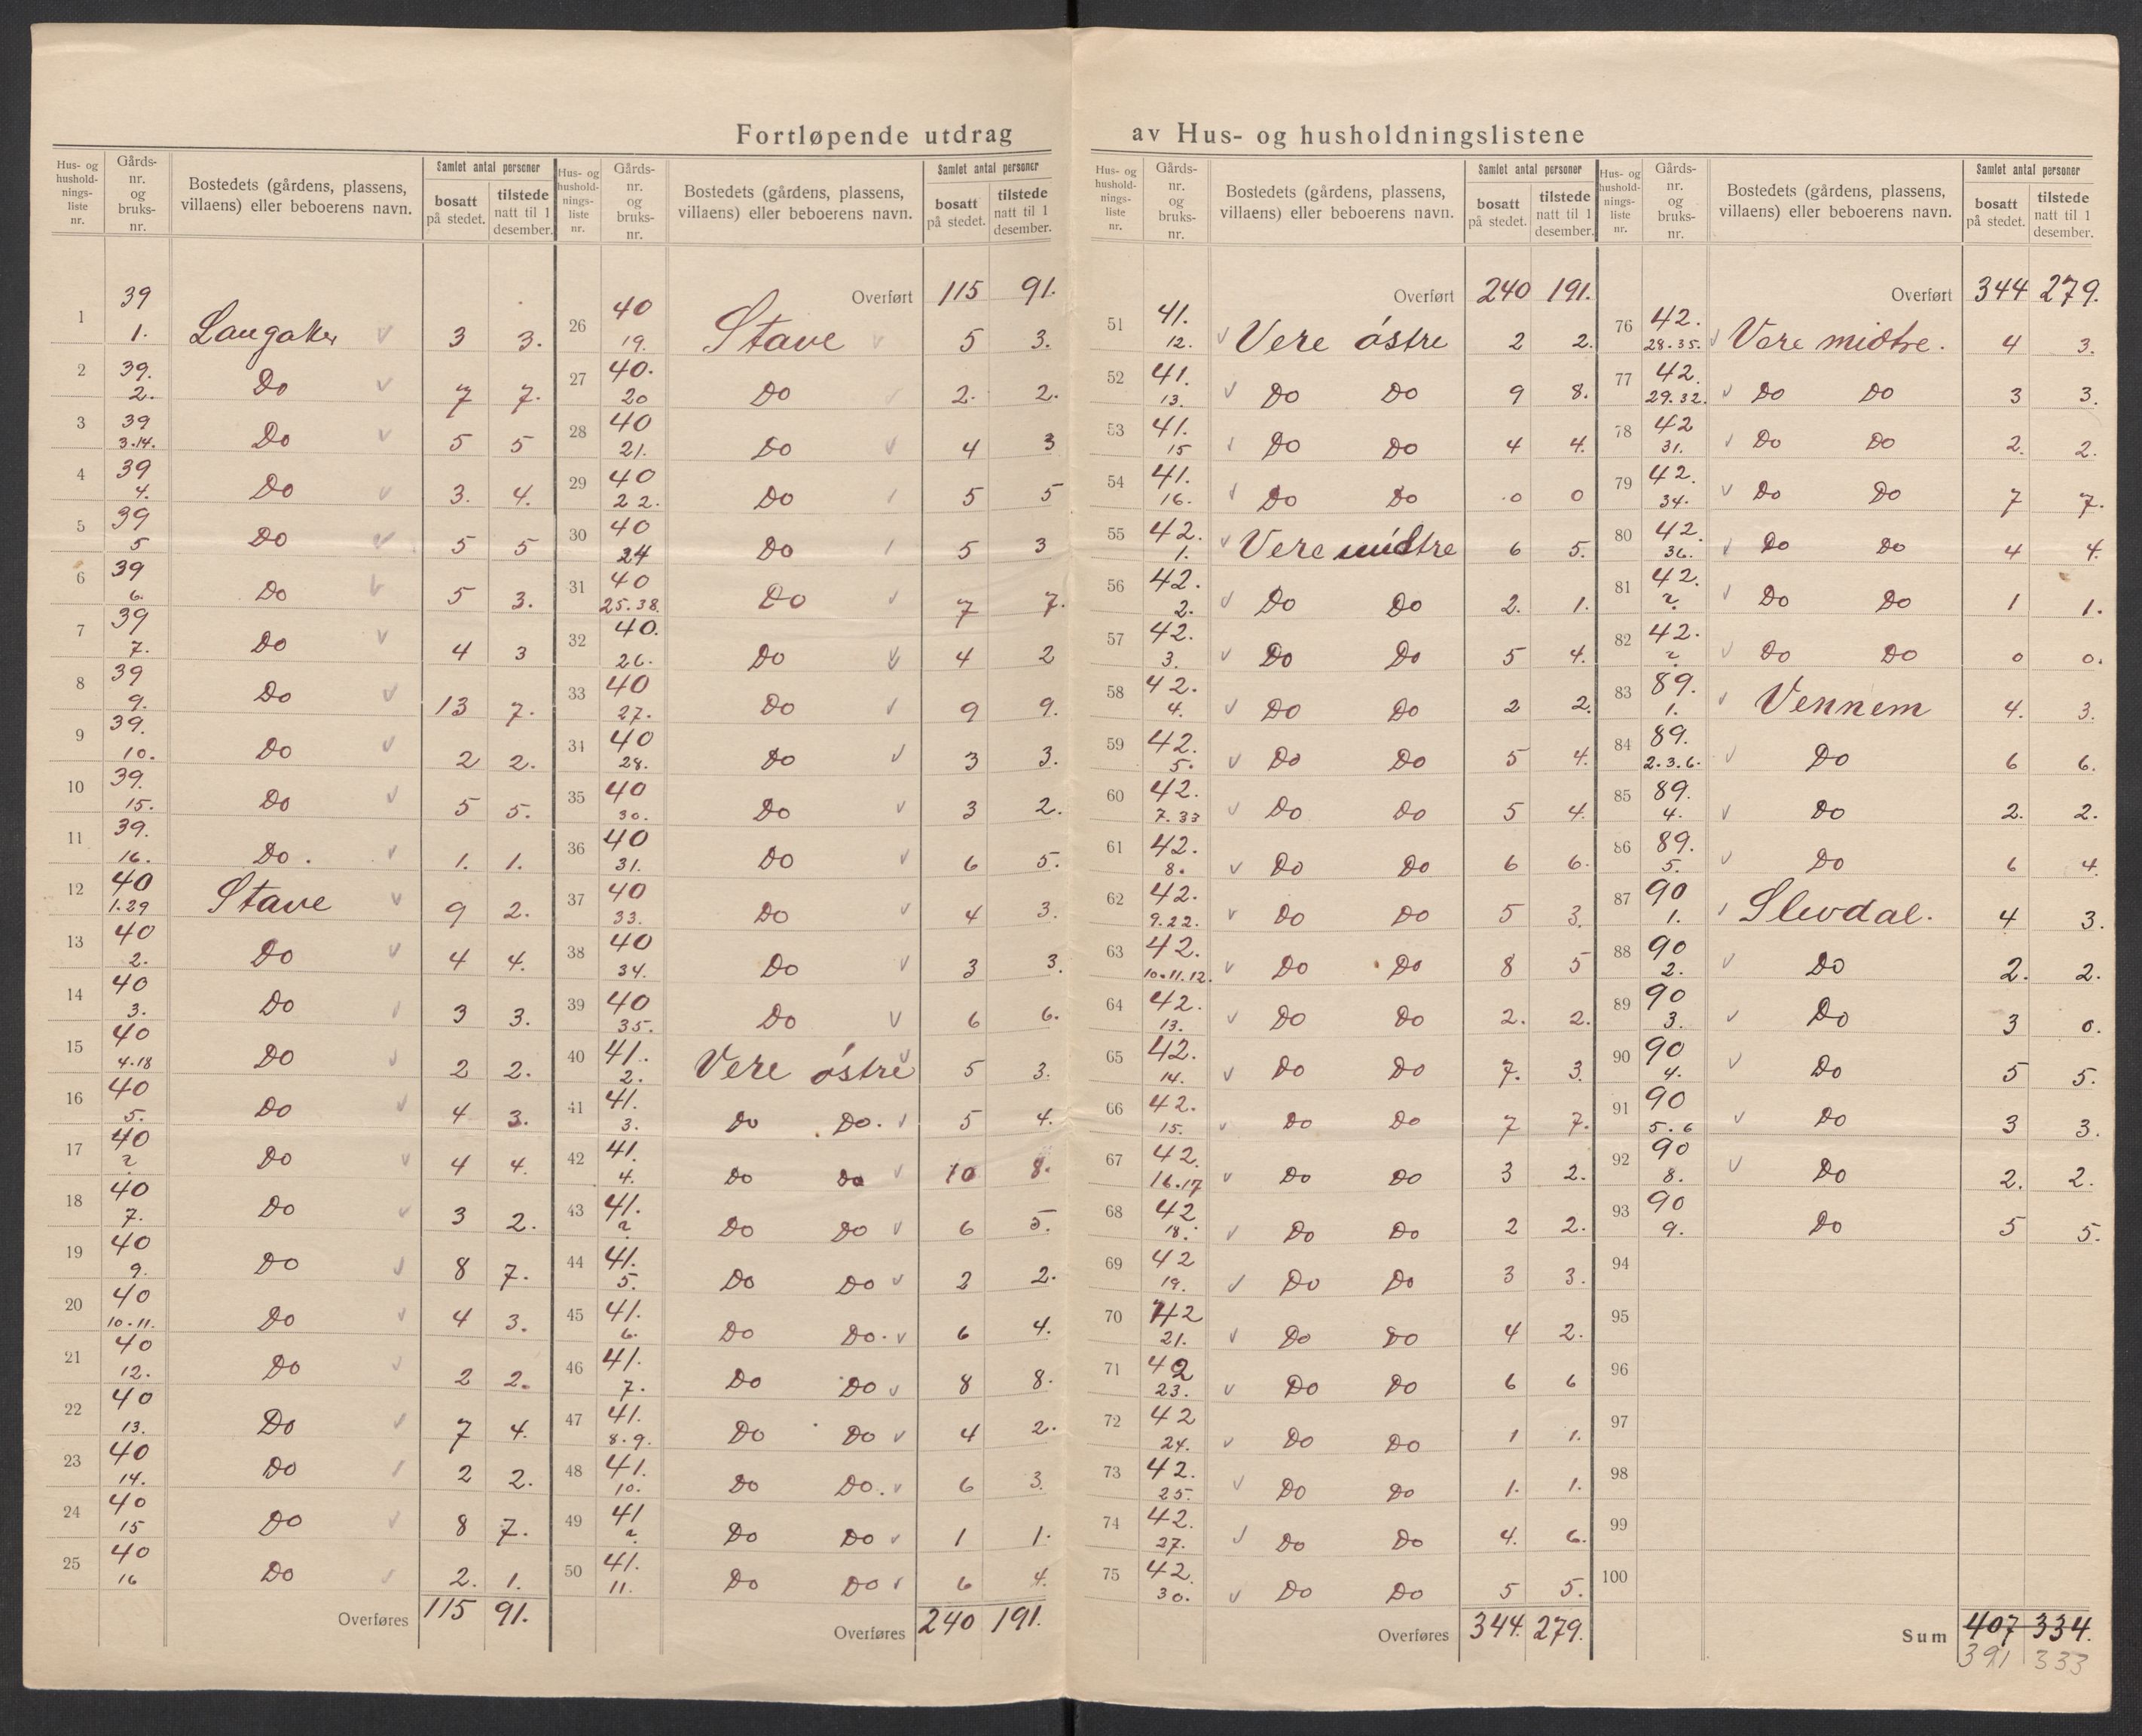 Fortløpende utdrag av Hus- og husholdningslistene
Hus- og hushold-nings-liste nr. | Gårds-nr. og bruks-nr. | Bostedets (gårdens, plassens, villaens) eller beboerens navn. | Samlet antal personer | bosatt på stedet. | tilstede natt til 1 desember.
1 | 39 1. | Langaker | 3 | 3.
2 | 39. 2. | Do | 7 | 7.
3 | 39 3.14. | Do | 5 | 5
4 | 39 4. | Do | 3. | 4.
5 | 39 5 | Do | 5 | 5
6 | 39 6. | Do | 5 | 3.
7 | 39 7. | Do | 4 | 3
8 | 39 9. | Do | 13 | 7.
9 | 39. 10. | Do | 2 | 2.
10 | 39. 15. | Do | 5 | 5.
11 | 39. 16. | Do. | 1. | 1.
12 | 40 1.29 | Stave | 9 | 2.
13 | 40 2. | Do | 4 | 4.
14 | 40 3. | Do | 3 | 3.
15 | 40 4.18 | Do | 2 | 2.
16 | 40 5. | Do | 4 | 3.
17 | 40 ? | Do | 4 | 4.
18 | 40 7. | Do | 3 | 2.
19 | 40 9. | Do | 8 | 7.
20 | 40 10.11. | Do | 4 | 3.
21 | 40 12. | Do | 2 | 2.
22 | 40 13. | Do | 7 | 4.
23 | 40 14. | Do | 2 | 2.
24 | 40 15 | Do | 8 | 7.
25 | 40 16 | Do | 2. | 1.
Overføres 115 91.
Hus- og hushold-nings-liste nr. | Gårds-nr. og bruks-nr. | Bostedets (gårdens, plassens, villaens) eller beboerens navn. | Samlet antal personer | bosatt på stedet. | tilstede natt til 1 desember.
Overført 115 91.
26 | 40 19. | Stave | 5 | 3.
27 | 40. 20 | Do | 2. | 2.
28 | 40 21. | Do | 4 | 3
29 | 40 22. | Do | 5 | 5
30 | 40 24 | Do | 5 | 3
31 | 40 25.38. | Do | 7 | 7.
32 | 40. 26. | Do | 4 | 2
33 | 40 27. | Do | 9 | 9.
34 | 40 28. | Do | 3 | 3.
35 | 40 30. | Do | 3 | 2.
36 | 40 31. | Do | 6 | 5.
37 | 40 33. | Do | 4 | 3.
38 | 40 34. | Do | 3 | 3.
39 | 40 35. | Do | 6 | 6.
40 | 41. 2. | Vere østre | 5 | 3.
41 | 41. 3. | Do Do. | 5 | 4.
42 | 41. 4. | Do Do | 10 | 8.
43 | 41. ? | Do Do | 6 | 5.
44 | 41. 5. | Do Do | 2 | 2.
45 | 41. 6. | Do Do. | 6 | 4.
46 | 41. 7. | Do Do | 8 | 8.
47 | 41. 8.9. | Do Do | 4 | 2.
48 | 41. 10. | Do Do. | 6 | 3.
49 | 41 ? | Do Do | 1 | 1.
50 | 41. 11. | Do Do | 6 | 4.
Overføres 240 191.
Hus- og hushold-nings-liste nr. | Gårds-nr. og bruks-nr. | Bostedets (gårdens, plassens, villaens) eller beboerens navn. | Samlet antal personer | bosatt på stedet. | tilstede natt til 1 desember.
Overført 240 191.
51 | 41. 12. | Vere østre | 2 | 2.
52 | 41. 13. | Do Do | 9 | 8.
53 | 41. 15 | Do Do | 4 | 4.
54 | 41. 16. | Do Do | 0 | 0
55 | 42. 1. | Vere midtre | 6 | 5.
56 | 42. 2. | Do Do | 2. | 1.
57 | 42. 3. | Do Do | 5 | 4.
58 | 42. 4. | Do Do | 2 | 2.
59 | 42. 5. | Do Do | 5 | 4.
60 | 42. 7.33 | Do Do | 5 | 4.
61 | 42. 8. | Do Do | 6 | 6.
62 | 42. 9.22. | Do Do | 5 | 3.
63 | 42. 10.11.12. | Do Do | 8 | 5
64 | 42. 13. | Do Do | 2. | 2.
65 | 42. 14. | Do Do | 7. | 3.
66 | 42. 15. | Do Do | 7 | 7.
67 | 42. 16.17 | Do Do | 3 | 2.
68 | 42 18. | Do Do | 2 | 2.
69 | 42 19. | Do Do | 3 | 3.
70 | 42 21. | Do Do | 4 | 2.
71 | 42 23. | Do Do | 6 | 6
72 | 42 24. | Do Do | 1 | 1.
73 | 42. 25. | Do Do | 1. | 1.
74 | 42. 27. | Do Do | 4. | 6.
75 | 42. 30. | Do Do | 5 | 5.
Overføres 344. 279.
Hus- og hushold-nings-liste nr. | Gårds-nr. og bruks-nr. | Bostedets (gårdens, plassens, villaens) eller beboerens navn. | Samlet antal personer | bosatt på stedet. | tilstede natt til 1 desember.
Overført 344 279.
76 | 42. 28.35. | Vere midtre. | 4 | 3.
77 | 42. 29.32. | Do Do | 3 | 3.
78 | 42 31. | Do Do | 2. | 2.
79 | 42. 34. | Do Do | 7 | 7.
80 | 42. 36. | Do Do | 4 | 4.
81 | 42. ? | Do Do | 1 | 1.
82 | 42. ? | Do Do | 0 | 0.
83 | 89. 1. | Vennem | 4. | 3.
84 | 89. 2.3.6. | Do | 6 | 6.
85 | 89. 4. | Do | 2. | 2.
86 | 89. 5. | Do | 6 | 4.
87 | 90 1. | Slevdal. | 4 | 3.
88 | 90 2. | Do | 2. | 2.
89 | 90 3. | Do | 3 | 0.
90 | 90 4. | Do | 5 | 5.
91 | 90 5.6 | Do | 3 | 3.
92 | 90 8. | Do | 2. | 2.
93 | 90 9. | Do | 5 | 5.
94
95
96
97
98
99
100
Sum 407 334.
391 333